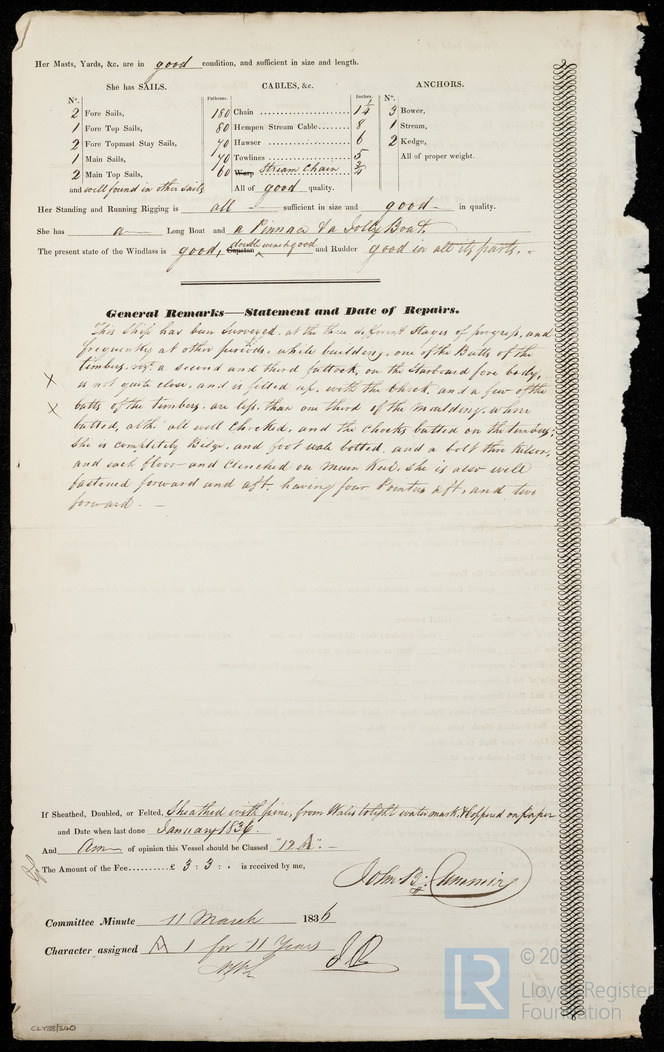 Her Masts, Yards, &c. are in good condition, and sufficient in size and length.
She has SAILS. CABLES, &c. ANCHORS.
N°. Fathoms. Inches. N°.
2 Fore Sails, 180 Chain 1 1/4 3 Bower,
1 Fore Top Sails, 80 Hempen Stream Cable 8 1 Stream,
2 Fore Topmast Stay Sails, 70 Hawser 6 2 Kedge,
1 Main Sails, 70 Towlines 5 All of proper weight.
2 Main Top Sails, 60 Warp Stream Chain 3/4
and well found in other sails All of good quality.
Her Standing and Running Rigging is all sufficient in size and good in quality.
She has a Long Boat and a Pinnace & a Jolly Boat.
The present state of the Windlass is good, Capstan double winch good and Rudder good in all its parts.
General Remarks—Statement and Date of Repairs.
This Ship has been Surveyed, at the three different Stages of progress, and
frequently at other periods, while building, one of the Butts of the
timbers, vizt. a second and third futtock, on the Starboard fore body,
x is not quite close, and is filled up, with the chock, and a few of the
x butts of the timbers, are less, than one third of the moulding, when
butted, altho' all well Chocked, and the chocks butted on the timbers,
She is completely Bilge, and foot wale bolted, and a bolt thro Kelson,
and each floor and clenched on main Keel, she is also well
fastened forward and aft, having four Pointers aft, and two
forward. —
If Sheathed, Doubled, or Felted, Sheathed with pine, from Wales to light water mark, & Coppered on paper
and Date when last done January 1836.
And Am of opinion this Vessel should be Classed "12 A". —
The Amount of the Fee..........£ 3 : 3 : . is received by me,
John B. Cumming
Committee Minute 11 March 1836
Character assigned A 1 for 11 Years
CLY58/340
LR
Lloyd's Register
Foundation